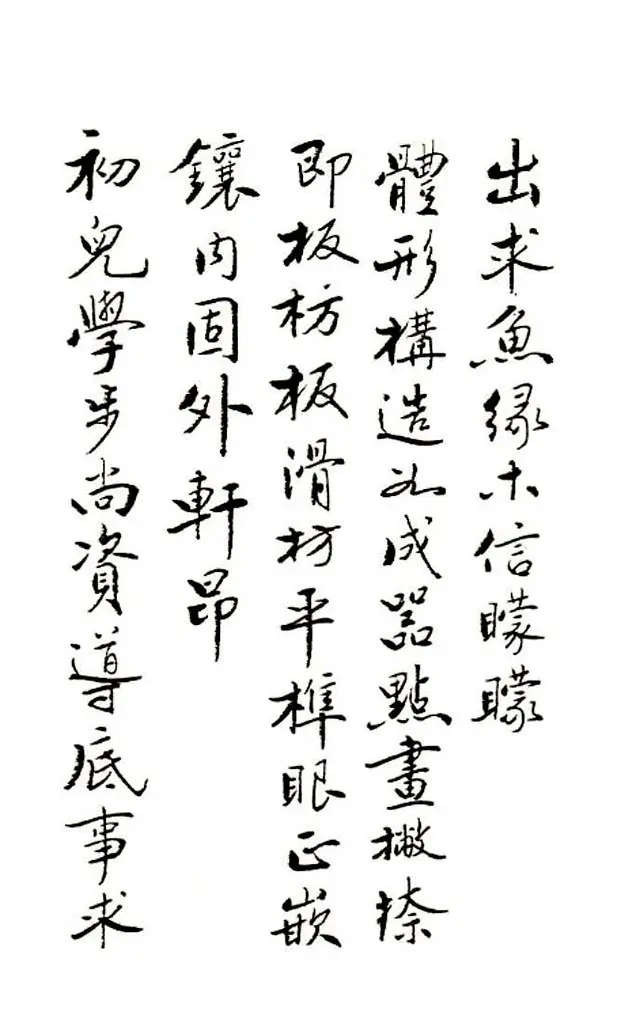 出求魚緣木信矇矇
體形構造如成器點畫撇捺
即板枋板滑枋平榫眼正嵌
鑲內固外軒昂
初兒學步尚資導底事求